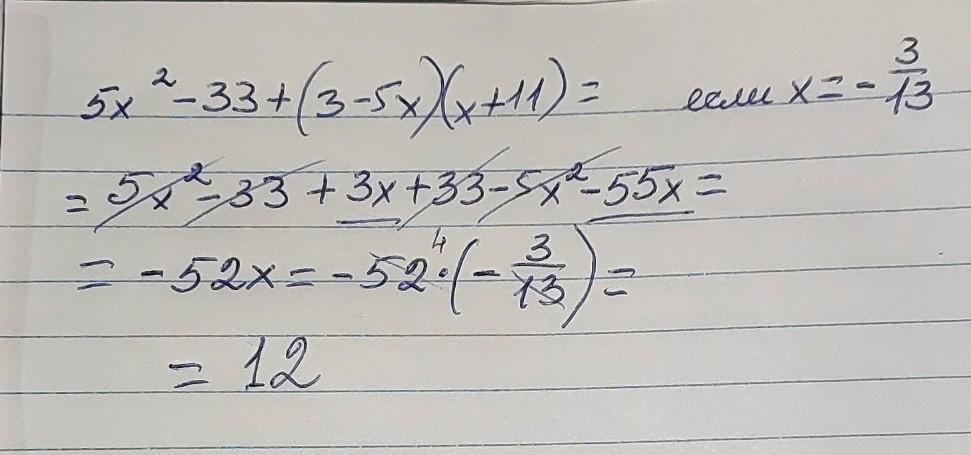 5x² - 33 + (3 - 5x)(x + 11) = если x = - 3/13
= 5x² - 33 + 3x + 33 - 5x² - 55x =
= - 52x = - 52⁴ · (- 3/13) =
= 12